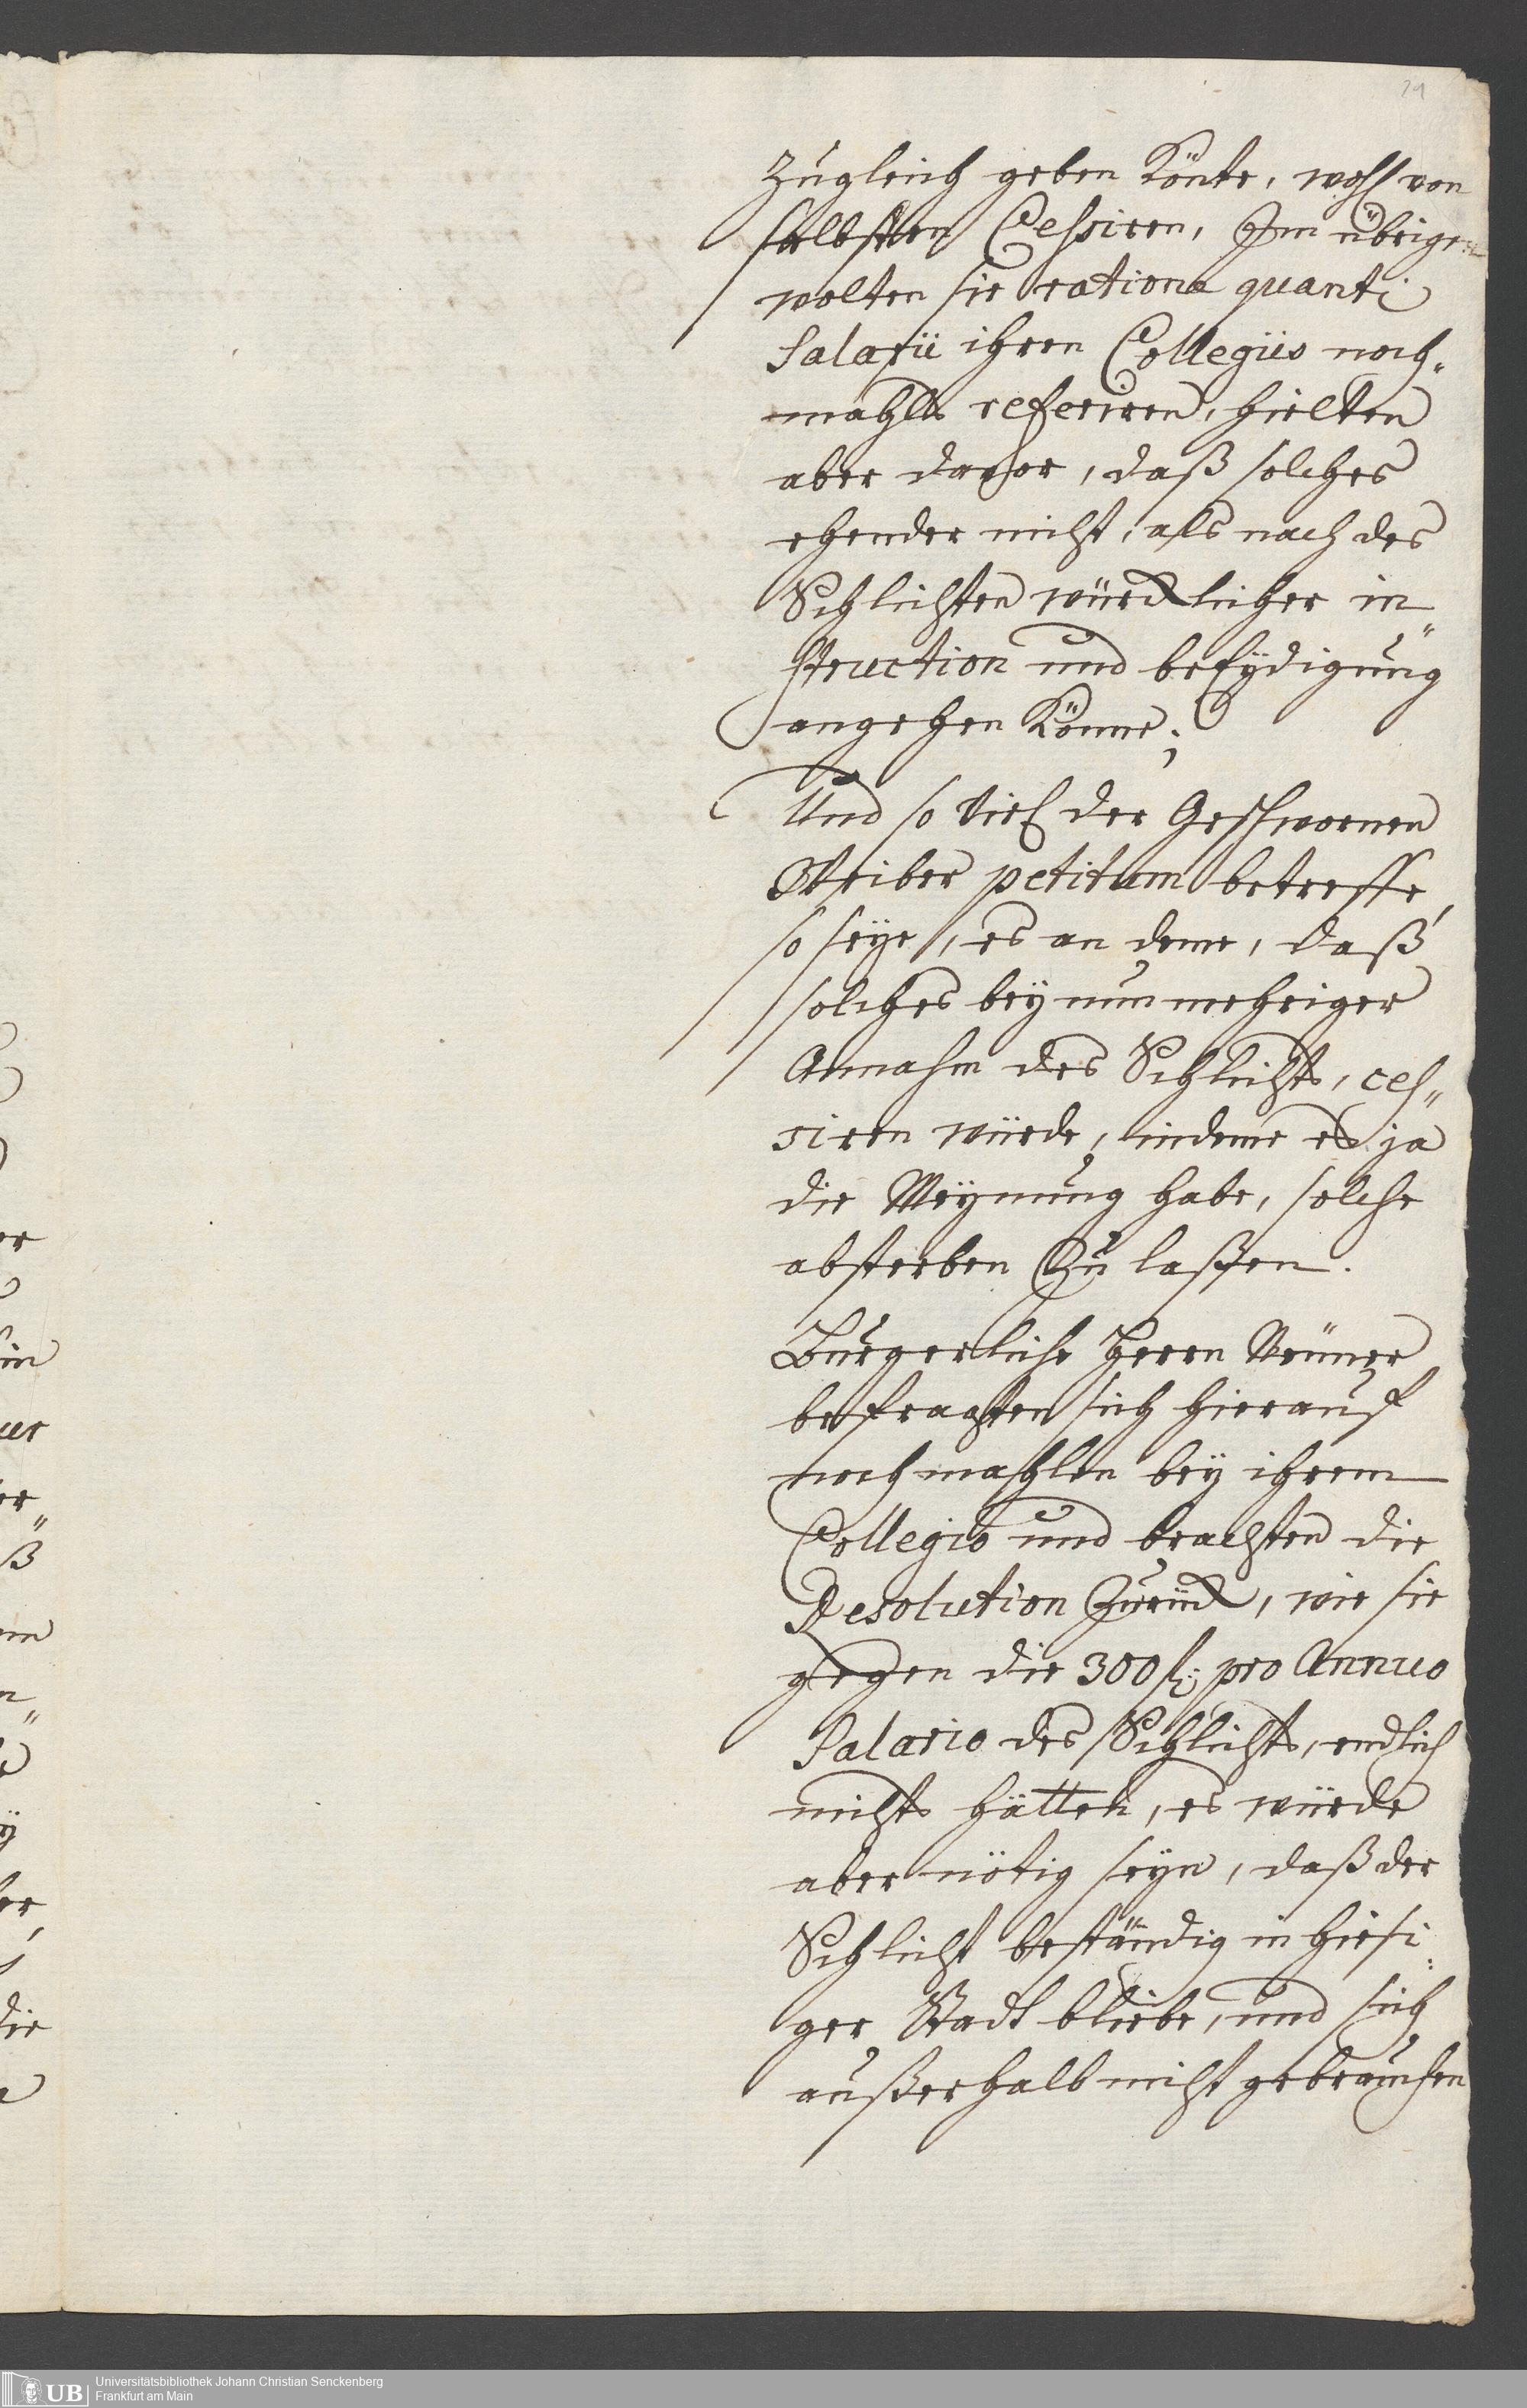 29
zugleich geben könte, wohl von
selbsten Cessiren, Im übrigen
wolten sie ratione quanti
Salarii ihren Collegiis noch-
mahls referiren, hielten
aber davor, daß solches
ehender nicht, als nach des
Schlichten würcklicher in-
struction und beeydigung
angehen könne;
Und so viel der Geschwornen
Weiber petitum betreffe,
so seye, es an deme, daß
solches bey nunmehriger
Annahm des Schlichts, ces-
siren würde, indeme es ja
die Meynung habe, solche
absterben zu lassen.
Burgerliche Herrn Neuner
befragten sich hierauf
nochmahlen bey ihrem
Collegio und brachten die
Resolution zurück, wie sie
gegen die 300 fl: pro Annuo
Salario des Schlichts, endlich
nichts hätten, es würde
aber nötig seyn, daß der
Schlicht beständig in hiesi-
ger Stadt bliebe, und sich
außerhalb nicht gebrauchen
UB Universitätsbibliothek Johann Christian Senckenberg
Frankfurt am Main